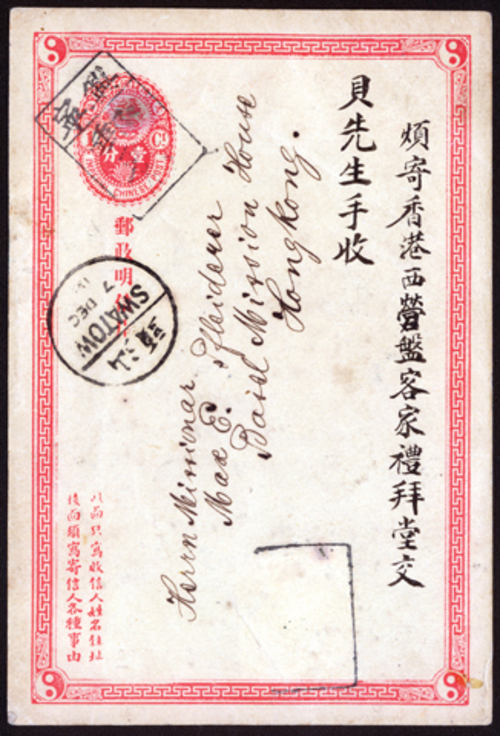 煩寄香港西營盤客家禮拜堂交
貝先生手收
Herrn Missionar
Max E. Pfleiderer
Basel Mission House
Hongkong.
壹分
CHINESE POST
郵政明信
SWATOW
7 DEC
此面只寫收信人姓名住址
後面須寫寄信人各種事由